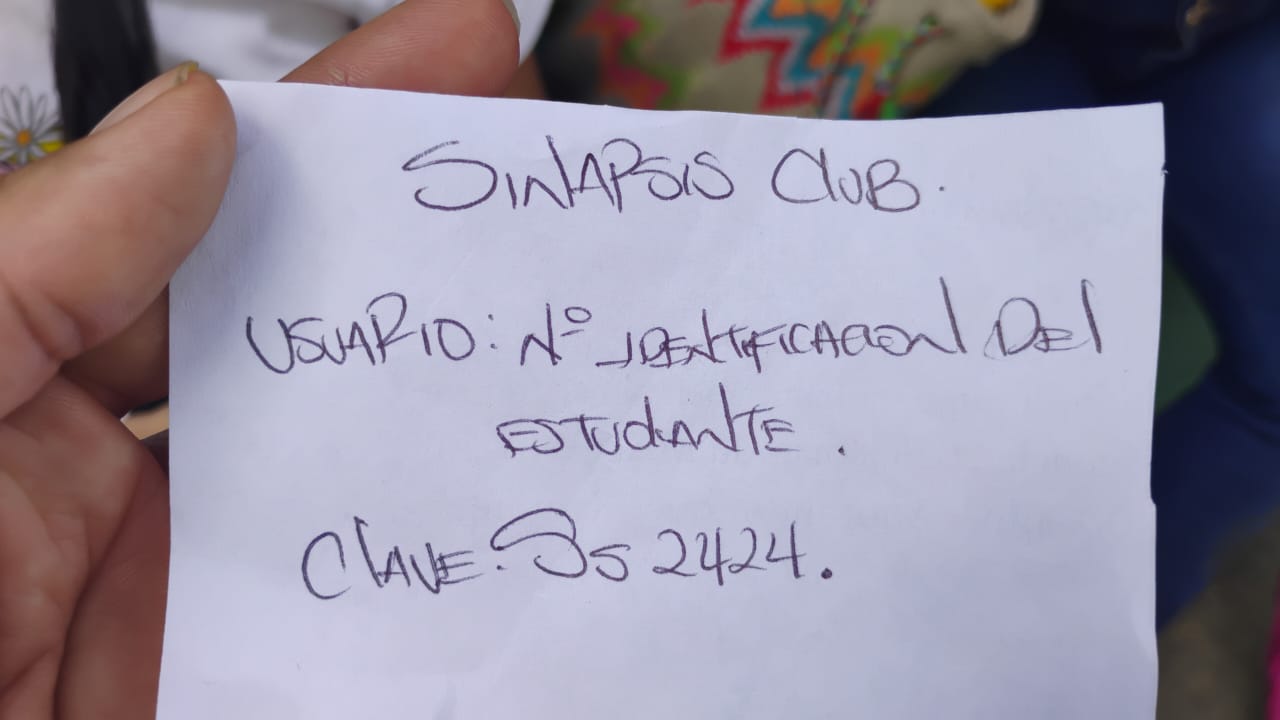 SINAPSIS CluB.
USUARIO: Nº IDENTIFICACION DEl
ESTUdiANTE.
ClAVE: Ss 2424.